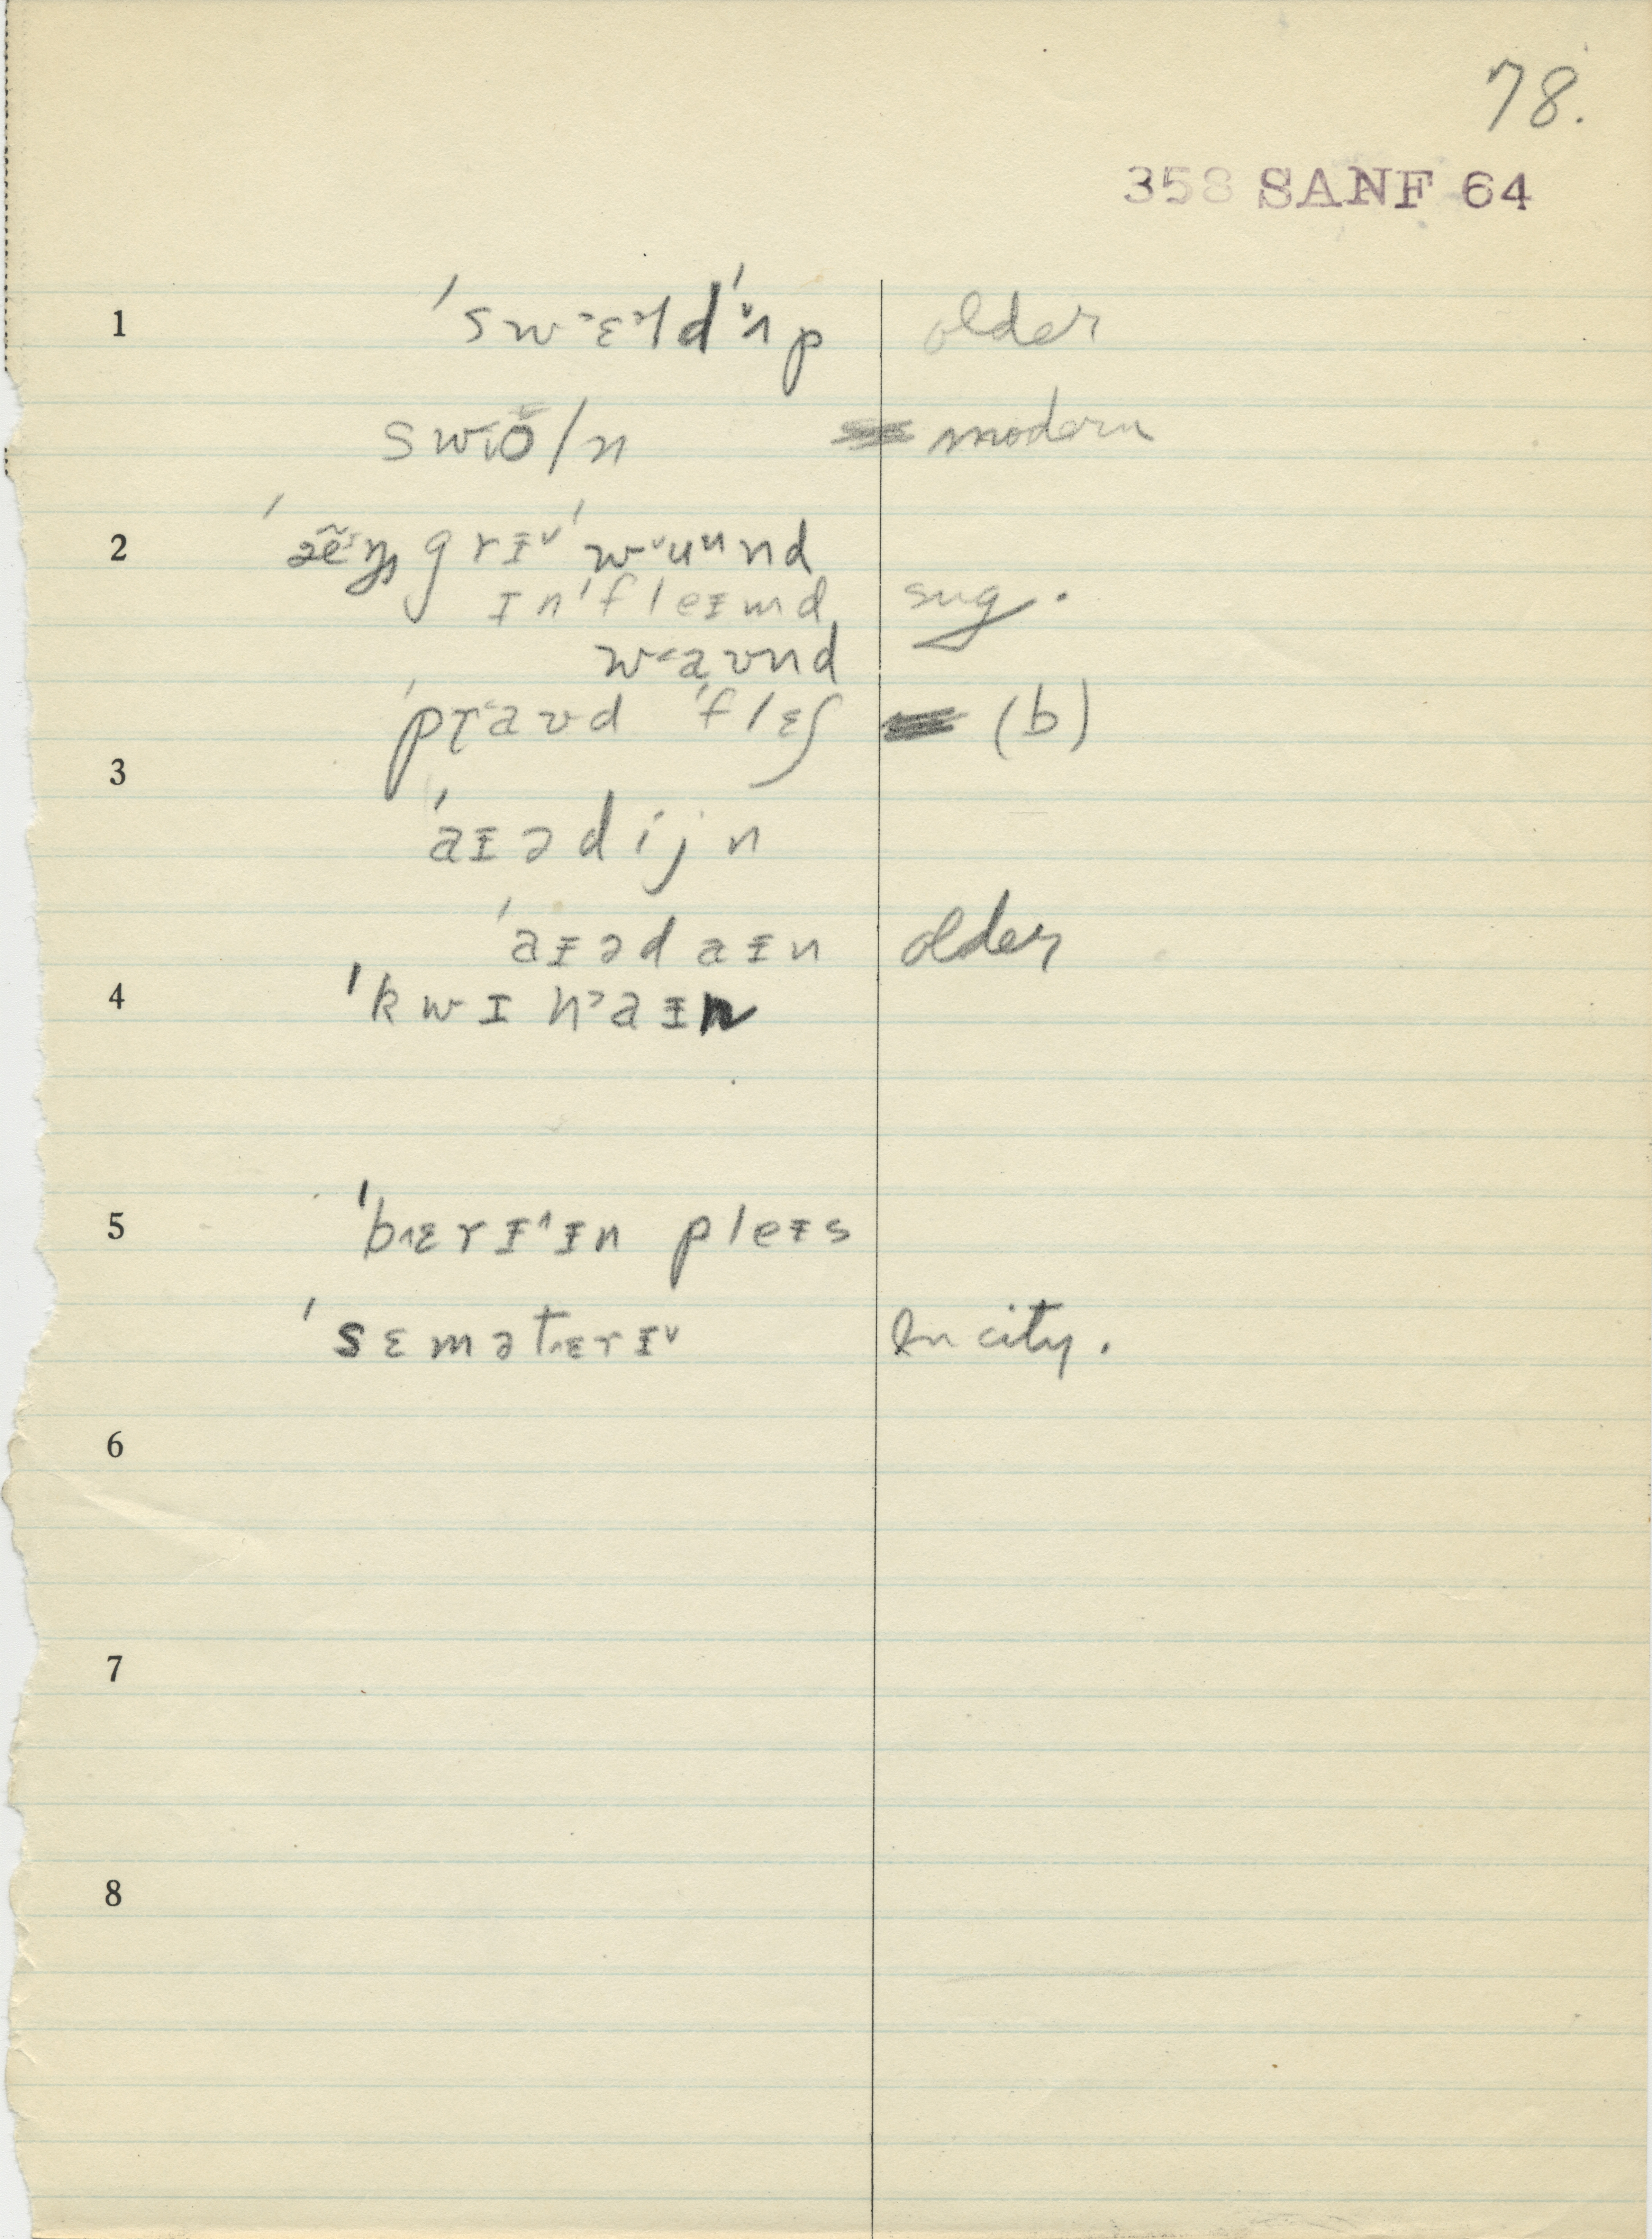 78.
358 SANF 64
1 ˈsw˃ɛ˃ɫdˈʌp older
swoln modern
2 ˈæ̃ẽᶦŋgrɪ˅ ˈw˅uᵘnd
ɪnˈfleɪmd sug.
w˂aʊnd
ˈpr˂aʊd ˈflɛʃ (b)
3
ˈaɪədijn
ˈaɪədaɪn older
4 ˈkwɪn˃aɪn
5 ˈb˄ɛrɪ˄ɪn pleɪs
ˈsɛmət˄ɛrɪ˅ In city.
6
7
8